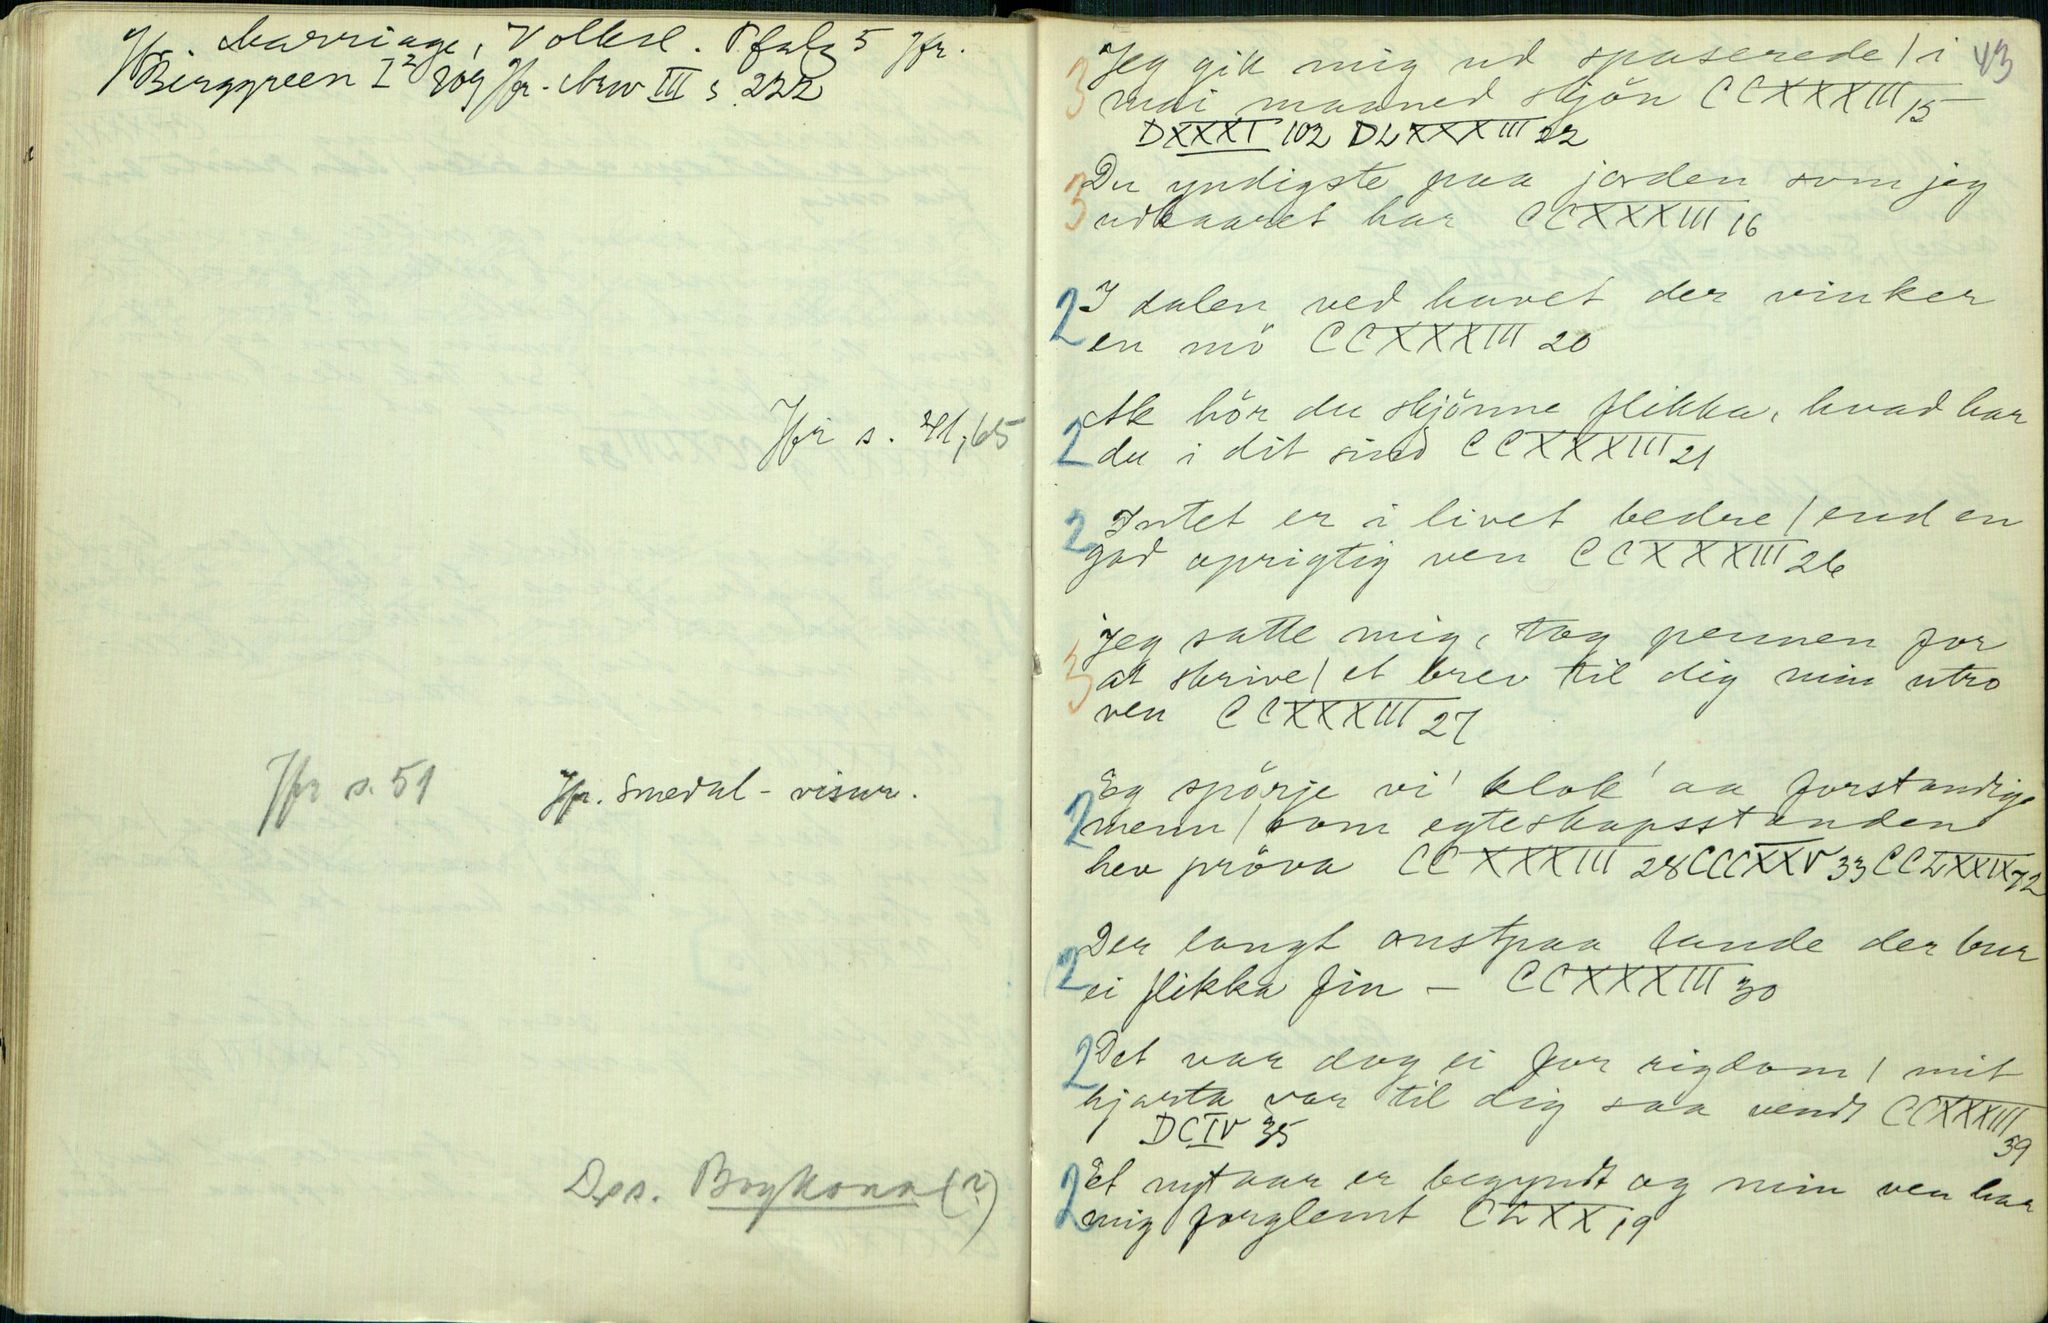 Jfr. Marriage, Volksl. Pfalz 5 Jfr.
Berggreen I² 209 Jfr. Arw III s 222
Jfr s. 41, 65
Jfr s. 51 Jfr. Smedal-visur.
(?)
43
3 Jeg gik mig ud spaserede / i
mai maaned skjön CCXXXIII 15
DXXXI 102 DLXXXIII 22
3 Du yndigste paa jorden som jeg
udkaaret har CCXXXIII 16
2 I dalen ved havet der vinker
en mö CCXXXIII 20
2 Ak hör du skjönne flikka, hvad har
du i dit sind CCXXXIII 21
2 Intet er i livet bedre / end en
god oprigtig ven CCXXXIII 26
3 Jeg satte mig, tog pennen for
at skrive / et brev til dig min utro
ven CCXXXIII 27
2 Eg spörje vi' klok' aa forstandige
menn / som egteskapsstanden
hev pröva CCXXXIII 28 CCCXXV 33 CCLXXIX 72
2 Der langt austpaa lande der bur
ei flikka fin – CCXXXIII 30
2 Det var dog ei for rigdom / mit
hjarta var til dig saa vendt CCXXXIII
39
DCIV 35
2 Et nyt aar er begyndt og min ven har
mig forglemt CLXX 19